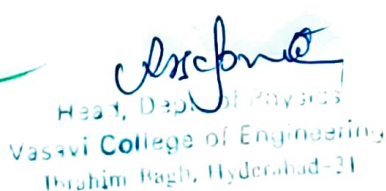 Head, Dept. of Physics
Vasavi College of Engineering
Ibrahim Bagh, Hyderabad-31